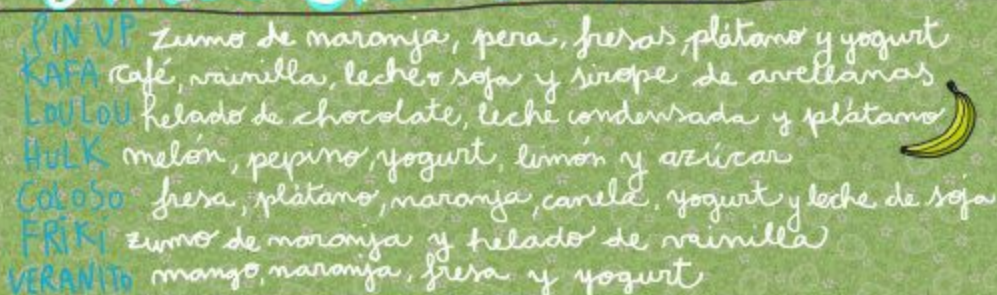 PIN UP zumo de naranja, pera, fresas, plátano y yogurt
KAFA café, vainilla, leche o soja y sirope de avellanas
LOULOU helado de chocolate, leche condensada y plátano
HULK melón, pepino, yogurt, limón y azúcar
COLOSO fresa, plátano, naranja, canela, yogurt y leche de soja
FRIKI zumo de naranja y helado de vainilla
VERANITO mango, naranja, fresa y yogurt